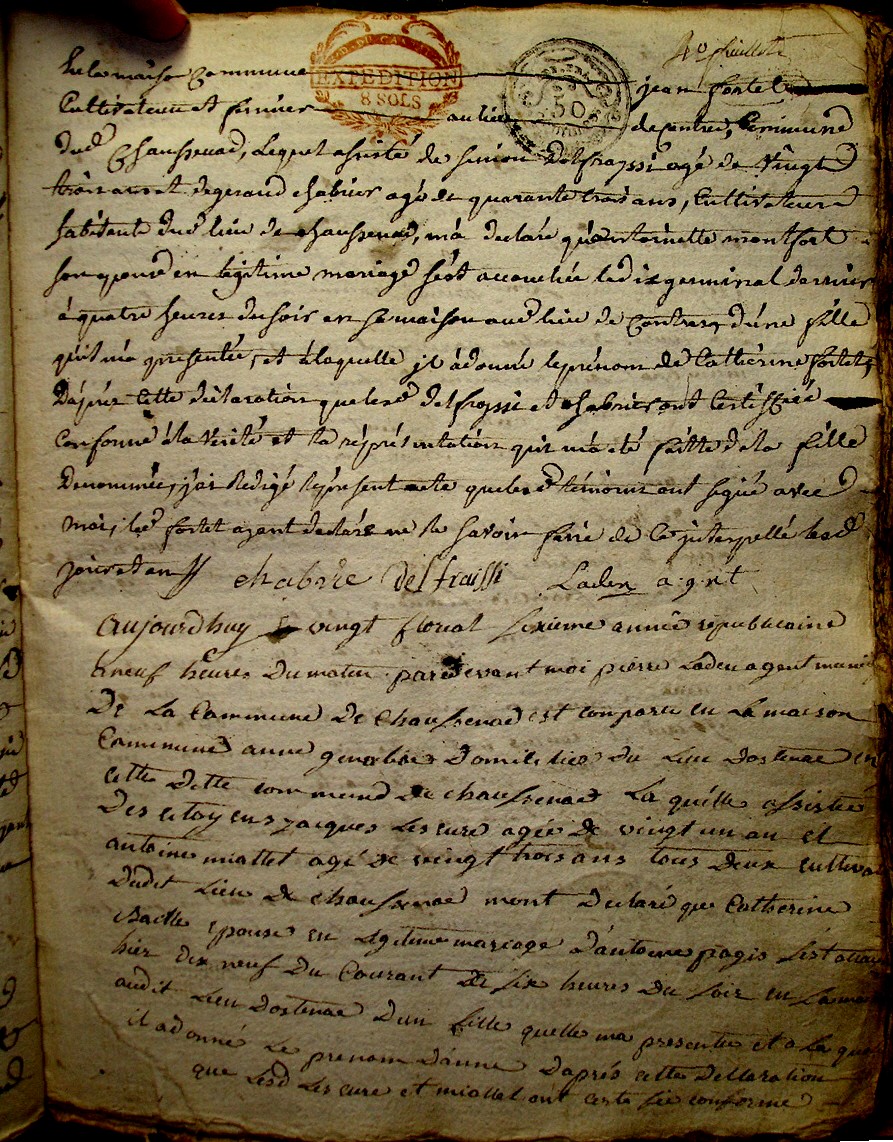 4e feuillet
EXPEDITION
8 SOLS
50
En la maison Commune jean fortet
Cultivateur et fermier au lieu de Contres, Commune
dud Chaussenac, lequel assisté de simon Delfrayssi agé de vingt
trois ans et de geraud chabrier agé de quarante trois ans, Cultivateurs
habitants dud lieu de chaussenac, m'a declaré qu'antoinette montfort
son epouse en legitime mariage s'est accouchée le dix germinal dernier
à quatre heures du soir en sa maison aud lieu de Contres, d'une fille
qu'il m'a presentée, et à laquelle il à donné le prénom de Catherine fortet,
D'après Cette déclaration que lesd delfrayssi et chabrier ont Certiffié
Conforme à la vérité et la réprésentation qui m'a été faitte de la fille
denommée, j'ai rédigé le présent acte que lesd témoins ont signé avec
moi, led fortet ayant déclaré ne le savoir faire de ce interpellé lesd
jour et an
chabrie delfraissi Laden agnt
aujourdhuy vingt floreal sixieme année republicaine
a neuf heures du matin pardevant moi pierre Laden agent muni
De La Commune De chaussenac est comparu en La maison
Commune anne domiciliée du Lieu dostenac en
cette ditte commune de chaussenac La quelle assistée
Des citoyens jacques Lescure agée de vingt un an et
antoine miallet agé de vingt trois ans tous deux cultiva
dudit Lieu de chaussenac mont declaré que Catherine
épouse en Légitime mariage d'antoine pagis sest accou
hier dix neuf du Courant de six heures du soir en La mai
audit Lieu dostenac dun fille quelle ma presentée et a La que
il a donné Le prenom d'anne d'aprés cette declaration
que Lesd Lescure et miallet ont certifié conforme